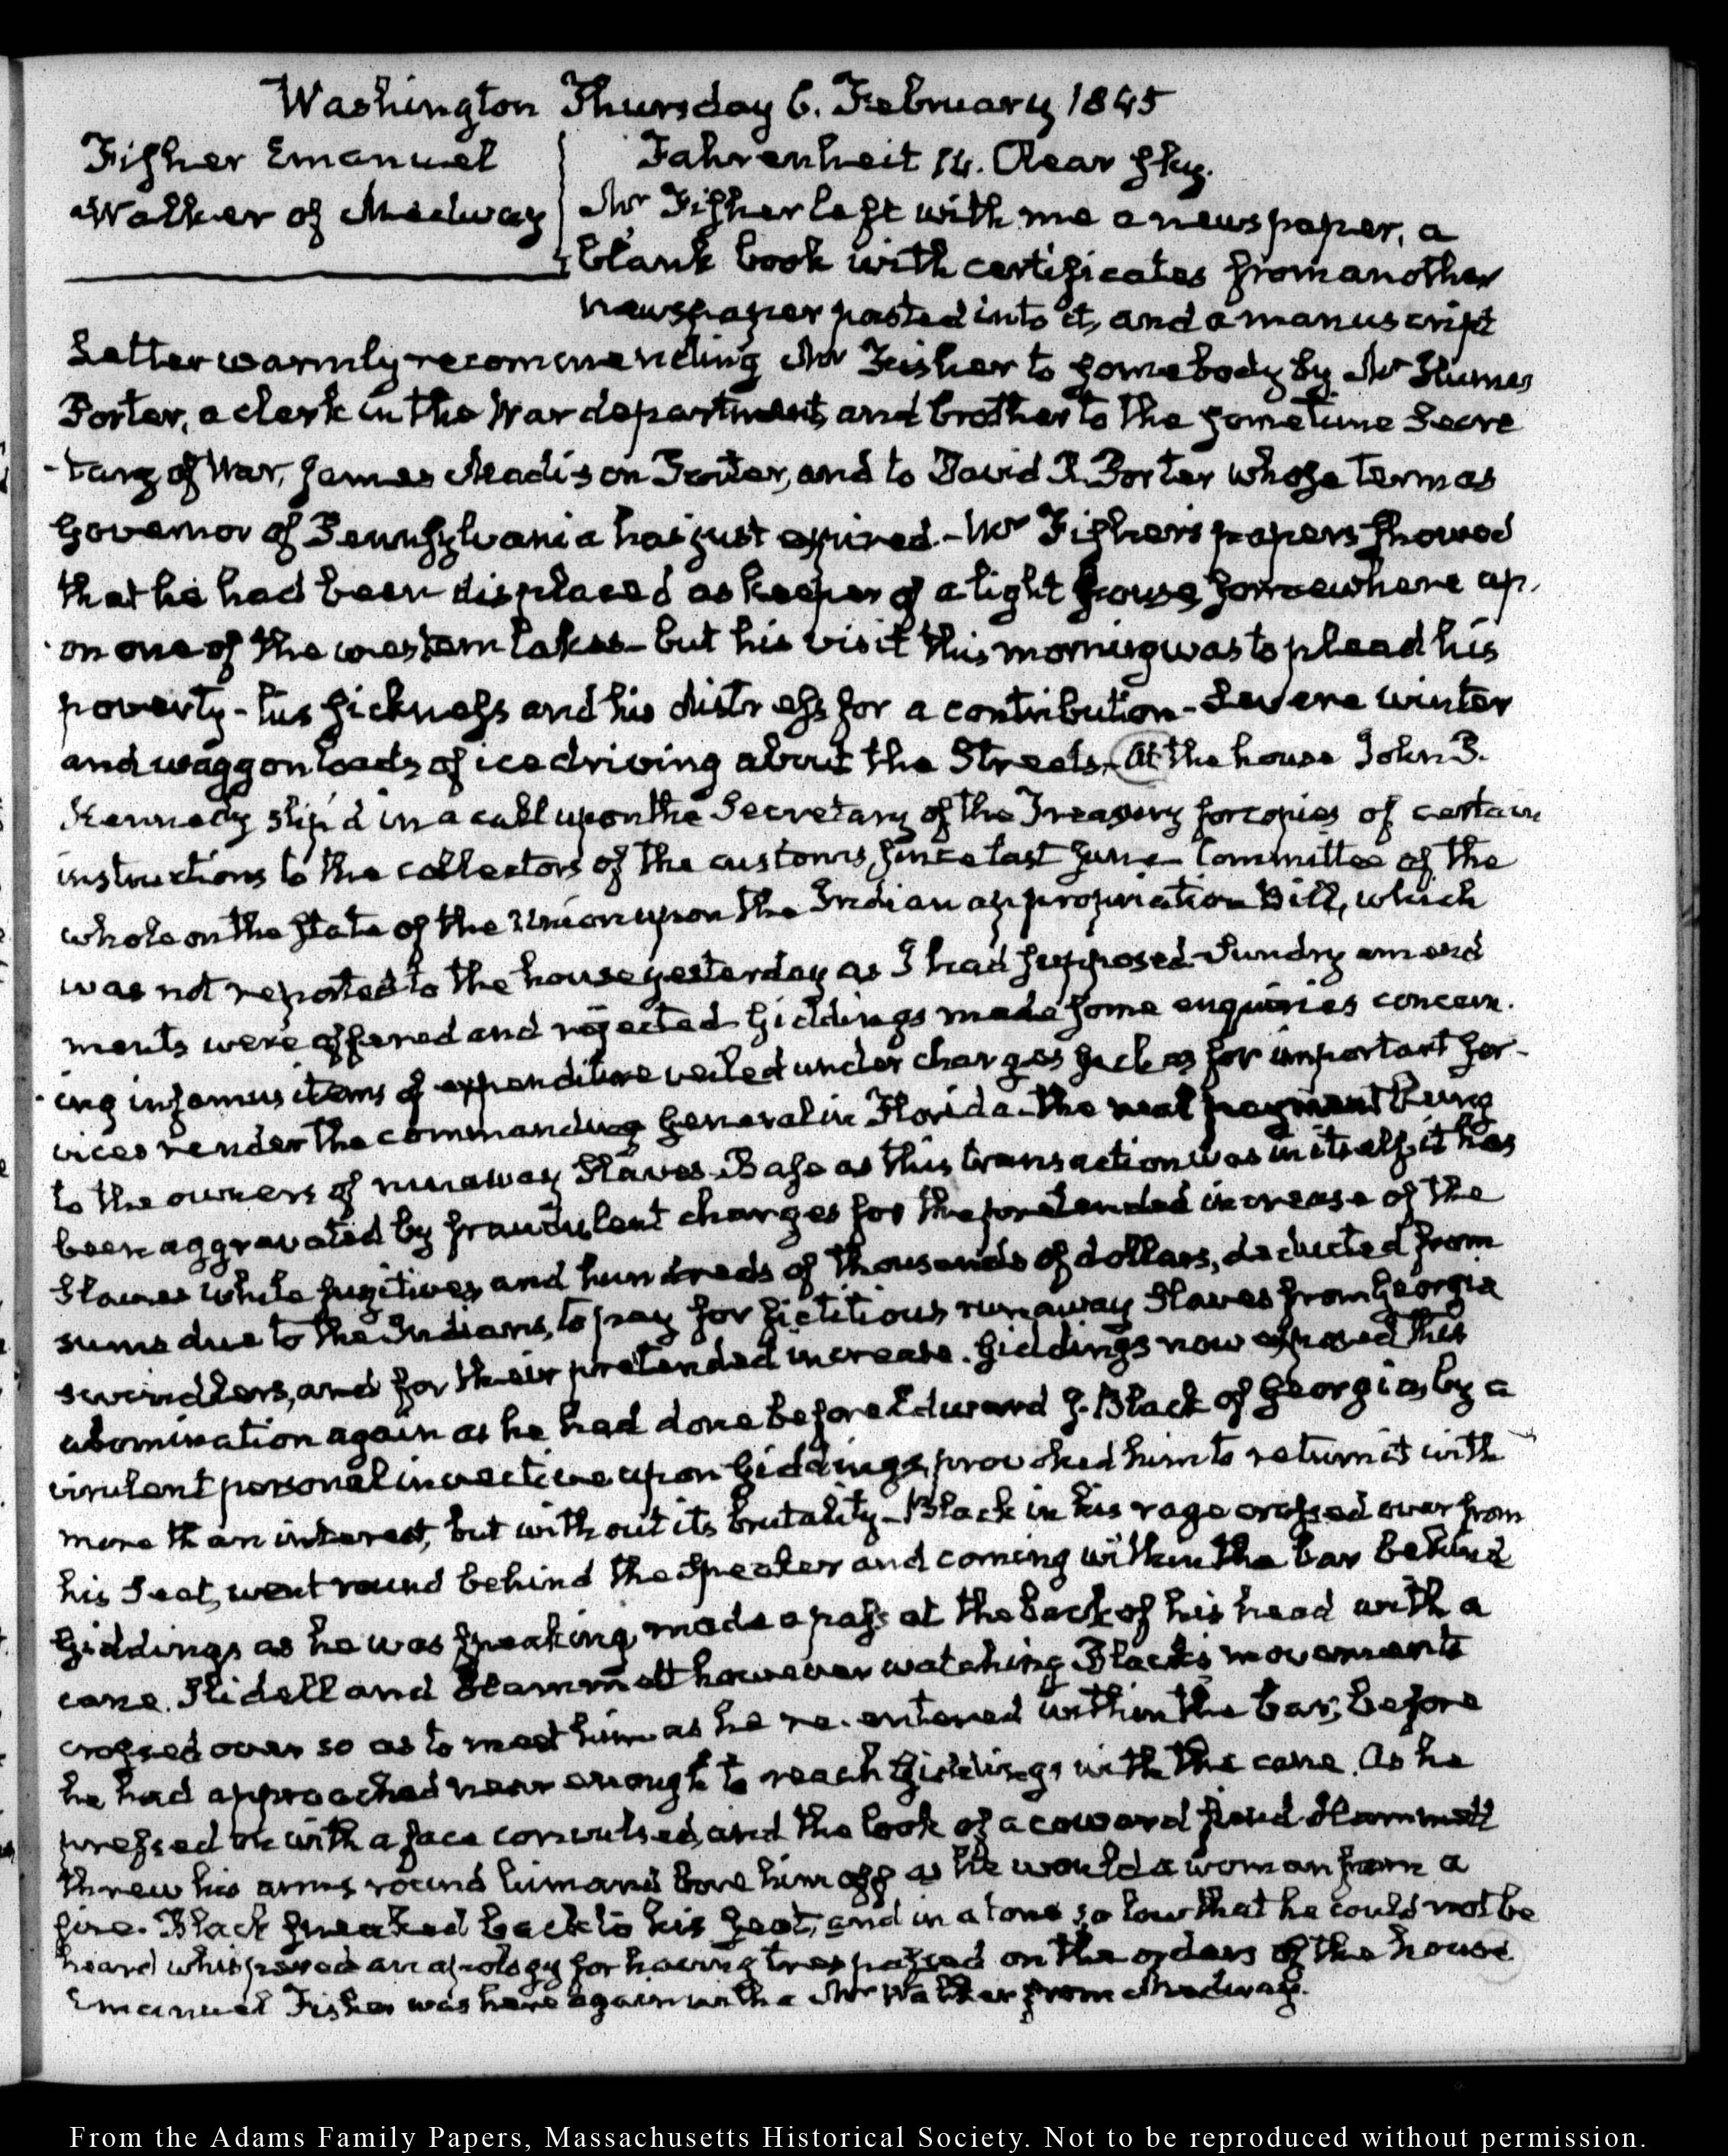 Washington Thursday 6. February 1845
Fisher Emanuel
Walker of Medway
Fahrenheit 14. Clear sky.
Mr Fisher left with me a newspaper, a
blank book with certificates from another
newspaper pasted into it, and a manuscript
Letter warmly recommending Mr Fisher to somebody by Mr
Porter, a clerk in the War department, and brother to the sometime Secre
-tary of War, James Madison Porter, and to David R. Porter whose term as
Governor of Pennsylvania has just expired.- Mr Fisher's papers showed
that he had been displaced as keeper of a light house somewhere up-
-on one of the western lakes- but his visit this morning was to plead his
poverty- his sickness and his distress for a contribution- Severe winter
and waggon loads of ice driving about the Streets. At the house John P.
Kennedy slip'd in a call upon the Secretary of the Treasury for copies of certain
instructions to the collectors of the customs, since last June- Committee of the
whole on the state of the Union upon the Indian appropriation Bill, which
was not reported to the house yesterday as I had supposed- Sundry amend
ments were offered and rejected- Giddings made some enquiries concern-
-ing infamous items of expenditure veiled under charges such as for important ser-
vices render the commanding General in Florida- the real payment being
to the owners of runaway Slaves- Base as this transaction was in itself, it has
been aggravated by fraudulent charges for the pretended increase of the
Slaves while fugitives, and hundreds of thousands of dollars, deducted from
sums due to the Indians, to pay for fictitious runaway Slaves from Georgia
swindlers, and for their pretended increase. Giddings now exposed this
abomination again as he had done before Edward J. Black of Georgia, by a
virulent personal invective upon Giddings, provoked him to return it with
more than interest, but without its brutality- Black in his rage crossed over from
his Seat, went round behind the Speaker and coming within the bar behind
Giddings as he was speaking, made a pass at the back of his head with a
cane. Slidell and Hammett however watching Black's movements
crossed over so as to meet him as he re-entered within the bar, before
he had approached near enough to reach Giddings with the cane. As he
pressed on with a face convulsed, and the look of a coward fiend Hammett
threw his arms round him and bore him off as he would a woman from a
fire. Black sneaked back to his seat, and in a tone so low that he could not be
heard whispered an apology for having trespassed on the orders of the house
Emanuel Fisher was here again with a Mr Walker from Medway.
From the Adams Family Papers, Massachusetts Historical Society. Not to be reproduced without permission.